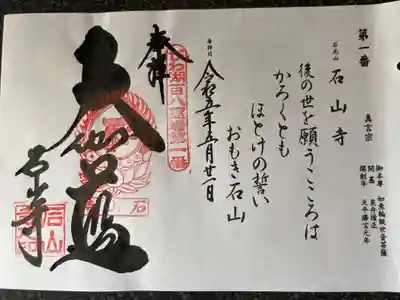 第一番
石光山
石山寺
真言宗
御本尊 如意輪観世音菩薩
開基 良弁僧正
開創年 天平勝宝元年
後の世を願うこころは
かろくとも
ほとけの誓い
おもき石山
参拝日
令和五年五月廿一日
奉拝
びわ湖百八霊場第一番
大伽藍
石山寺